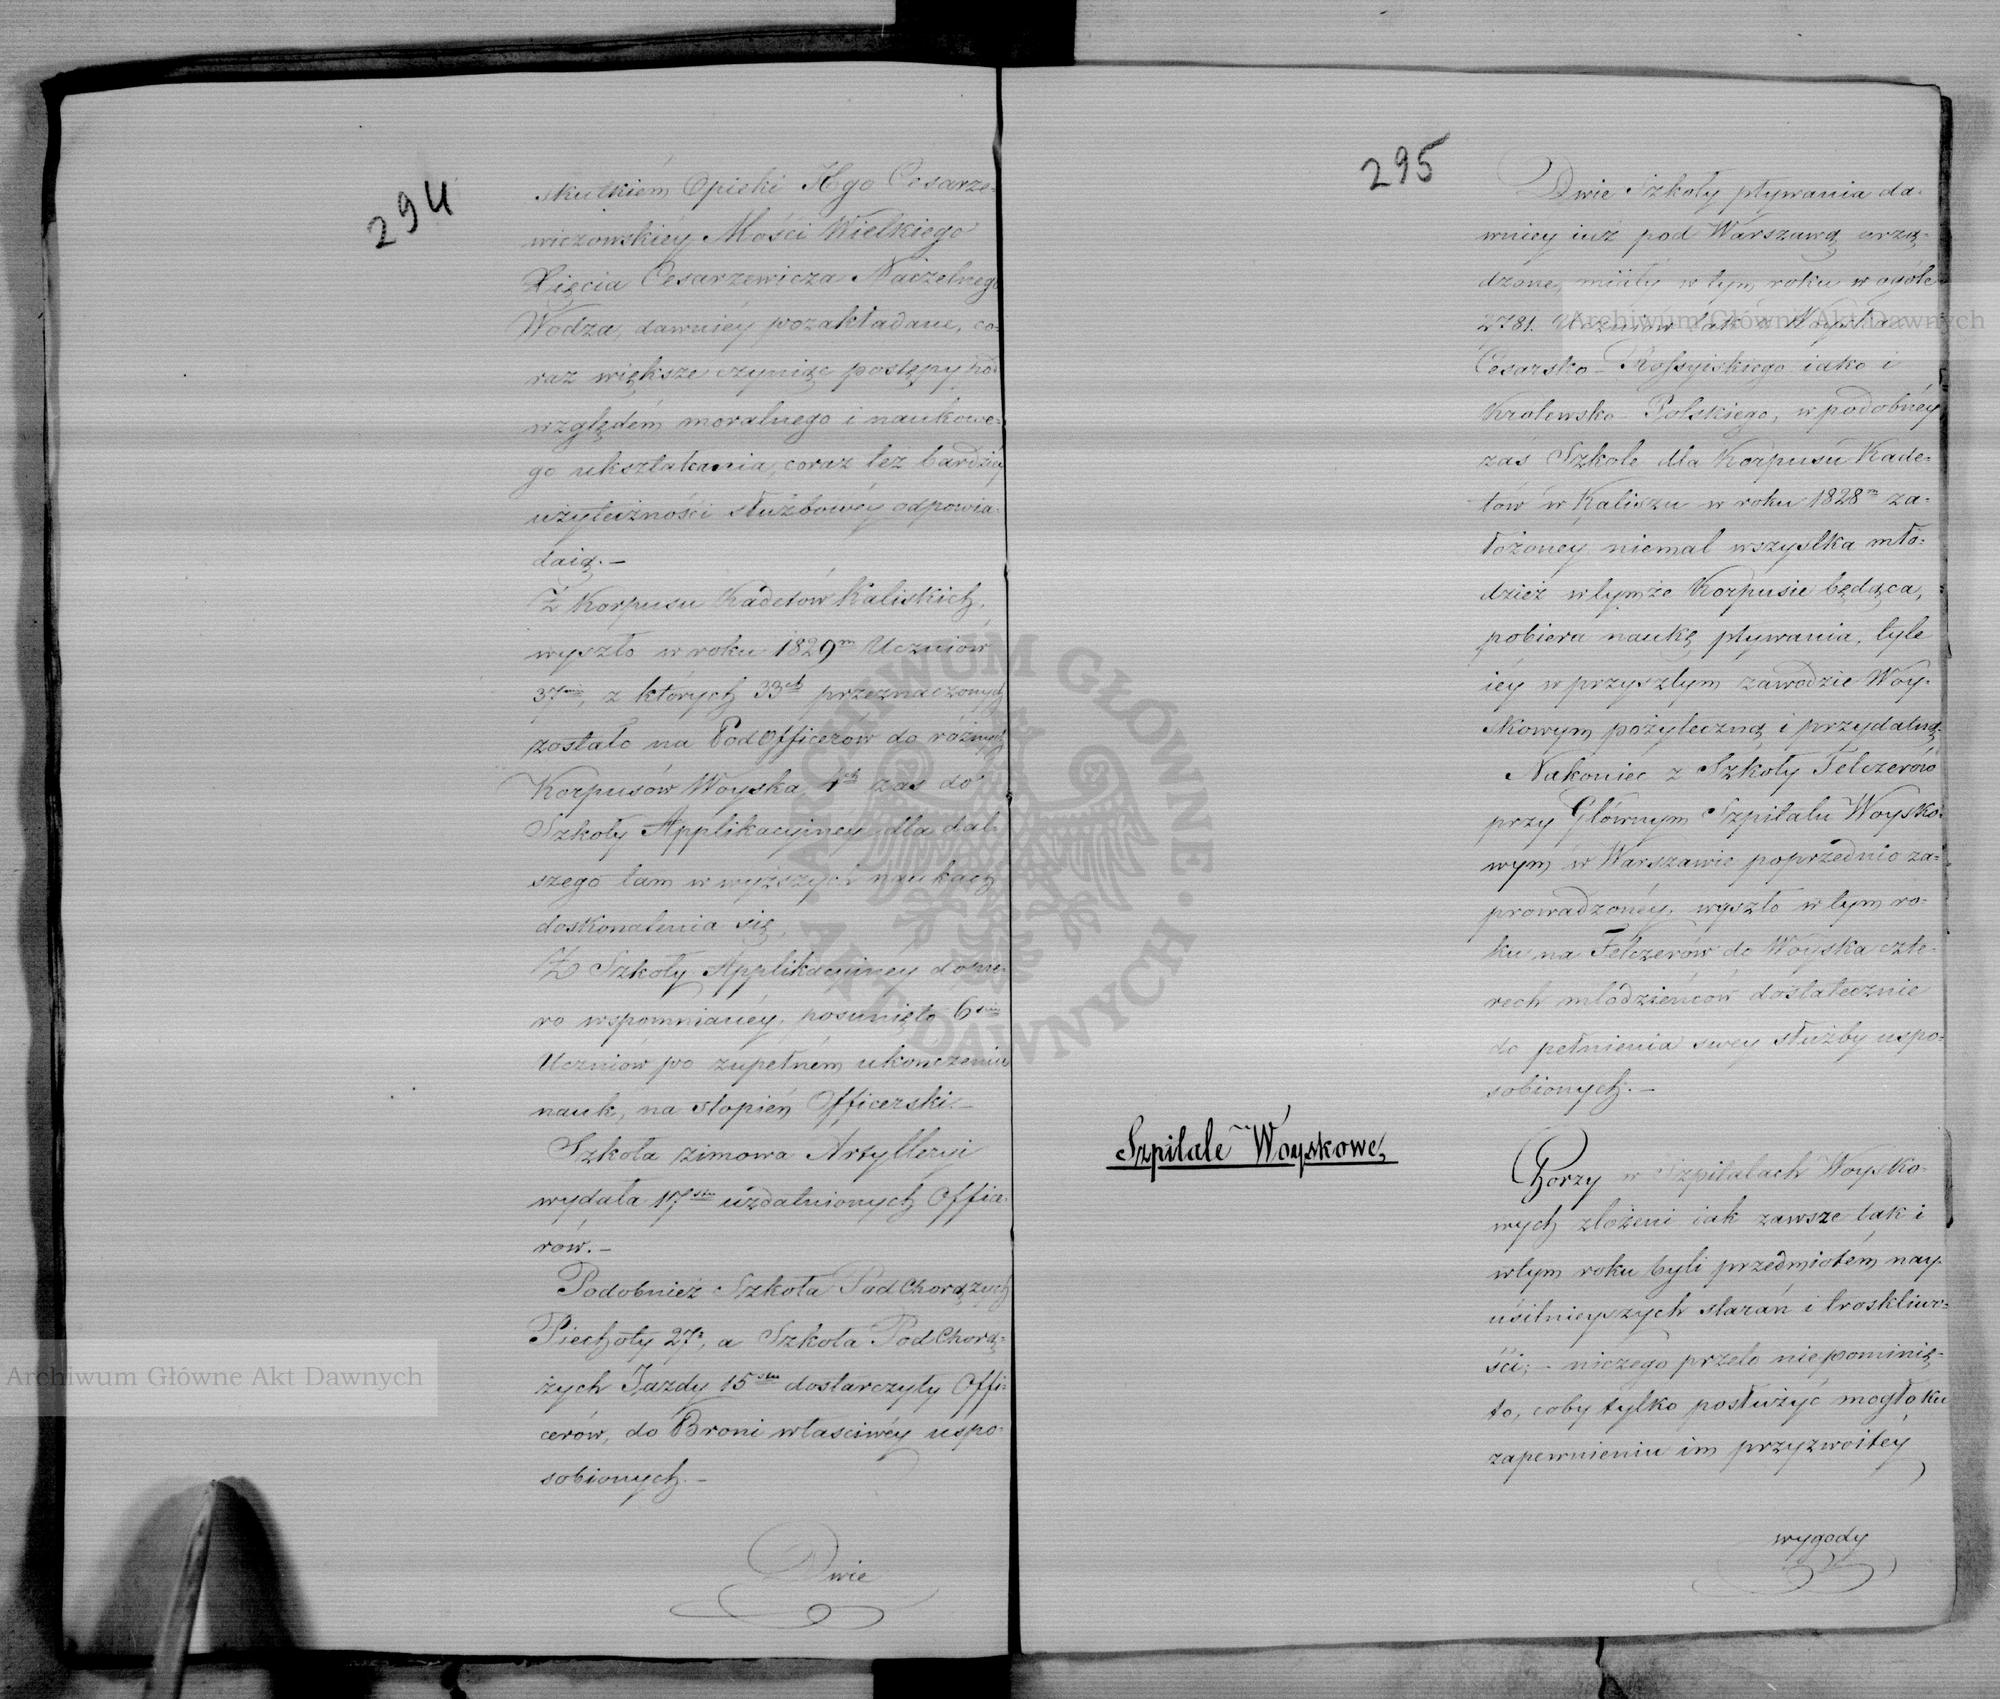 294
skutkiem Opieki JEgo Cesarze-
wiczowskiéy Mości Wielkiego
Xięcia Cesarzewicza Naczelnego
Wodza, dawniéy pozakładane, co-
raz większe czyniąc postępy pod
względém moralnego i naukowe-
go ukształcenia, coraz też bardziéy
użyteczności służbowéy odpowia-
daią. —
Z Korpusu Kadetów Kaliskich,
wyszło w roku 1829m Uczniów
37miu, z których 33ch przeznaczonych
zostało na PodOfficerów do różnych
Korpusów Woyska, 4ch zas do
Szkoły Applikacyiney dla dal-
szego tam w wyższych naukach
doskonalenia się,
Z Szkoły Applikacyinéy dopie-
ro wspomnianéy, posunięto 6ciu
Uczniów po zupełném ukonczeniu
nauk, na stopień Officerski. —
Szkoła zimowa Artylleryi
wydała 17stu uzdatnionych Office-
rów. —
Podobnież Szkoła PodChorążych
Piechoty 27u, a Szkoła PodChorą-
żych Jazdy 15stu dostarczyły Offi-
cerów, do Broni właściwéy uspo-
sobionych. —
Dwie
295
Dwie Szkoły pływania da-
wniey iuż pod Warszawą urzą-
dzone, miały w tym roku w ogóle
2781. Uczniów tak z Woyska
Cesarsko-Rossyiskiego iako i
Krolewsko-Polskiego, w podobnéy
zaś Szkole dla Korpusu Kade-
tów w Kaliszu w roku 1828m za-
łożoney niemal wszystka mło-
dzież w tymże Korpusie będąca,
pobiera naukę pływania, tyle
iéy w przyszłym zawodzie Woy-
skowym pożyteczną i przydatną.
Nakoniec z Szkoły Felczerów
przy Głównym Szpitalu Woysko-
wym w Warszawie poprzednio za-
prowadzonéy, wyszło w tym ro-
ku na Felczerów do Woyska czte-
rech młodzieńców dostatecznie
do pełnienia swey służby uspo-
sobionych. —
Szpitale Woyskowe,
Chorzy w Szpitalach Woysko-
wych złożeni iak zawsze tak i
w tym roku byli przedmiotém nay-
usilnieyszych starań i troskliwo-
ści; — niczego przeto niepominię-
to, coby tylko posłużyć mogło ku
zapewnieniu im przyzwoitey
wygody
Archiwum Główne Akt Dawnych
Archiwum Główne Akt Dawnych
ARCHIWUM GŁÓWNE AKT DAWNYCH